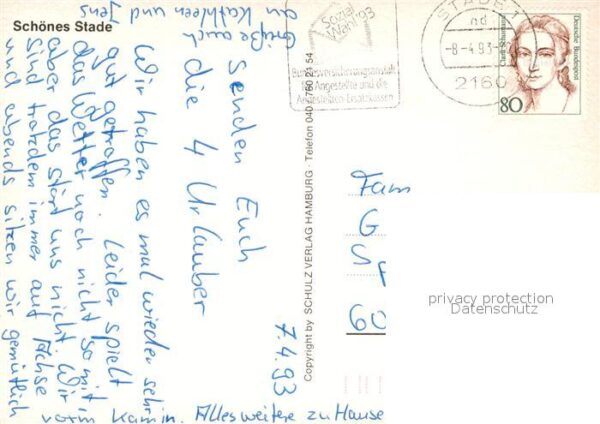 Schönes Stade
7.4.93
Wir haben es mal wieder sehr
gut getroffen. Leider spielt
das Wetter noch nicht so mit,
aber das stört uns nicht. Wir
sind trotzdem immer auf Achse
und abends sitzen wir gemütlich
vorm Kamin. Alles weitere zu Hause
senden Euch
die 4 Urlauber
Grüße auch
an Kathleen und Jens
Copyright by SCHULZ VERLAG HAMBURG · Telefon 040
Sozial
Wahl '93
Bundesversicherungsanstalt
für Angestellte und die
Angestellten-Ersatzkassen
STADE 1
nd
-8-4.93
2160
Clara Schumann
Deutsche Bundespost
80
Fam
G
St
60
privacy protection
Datenschutz